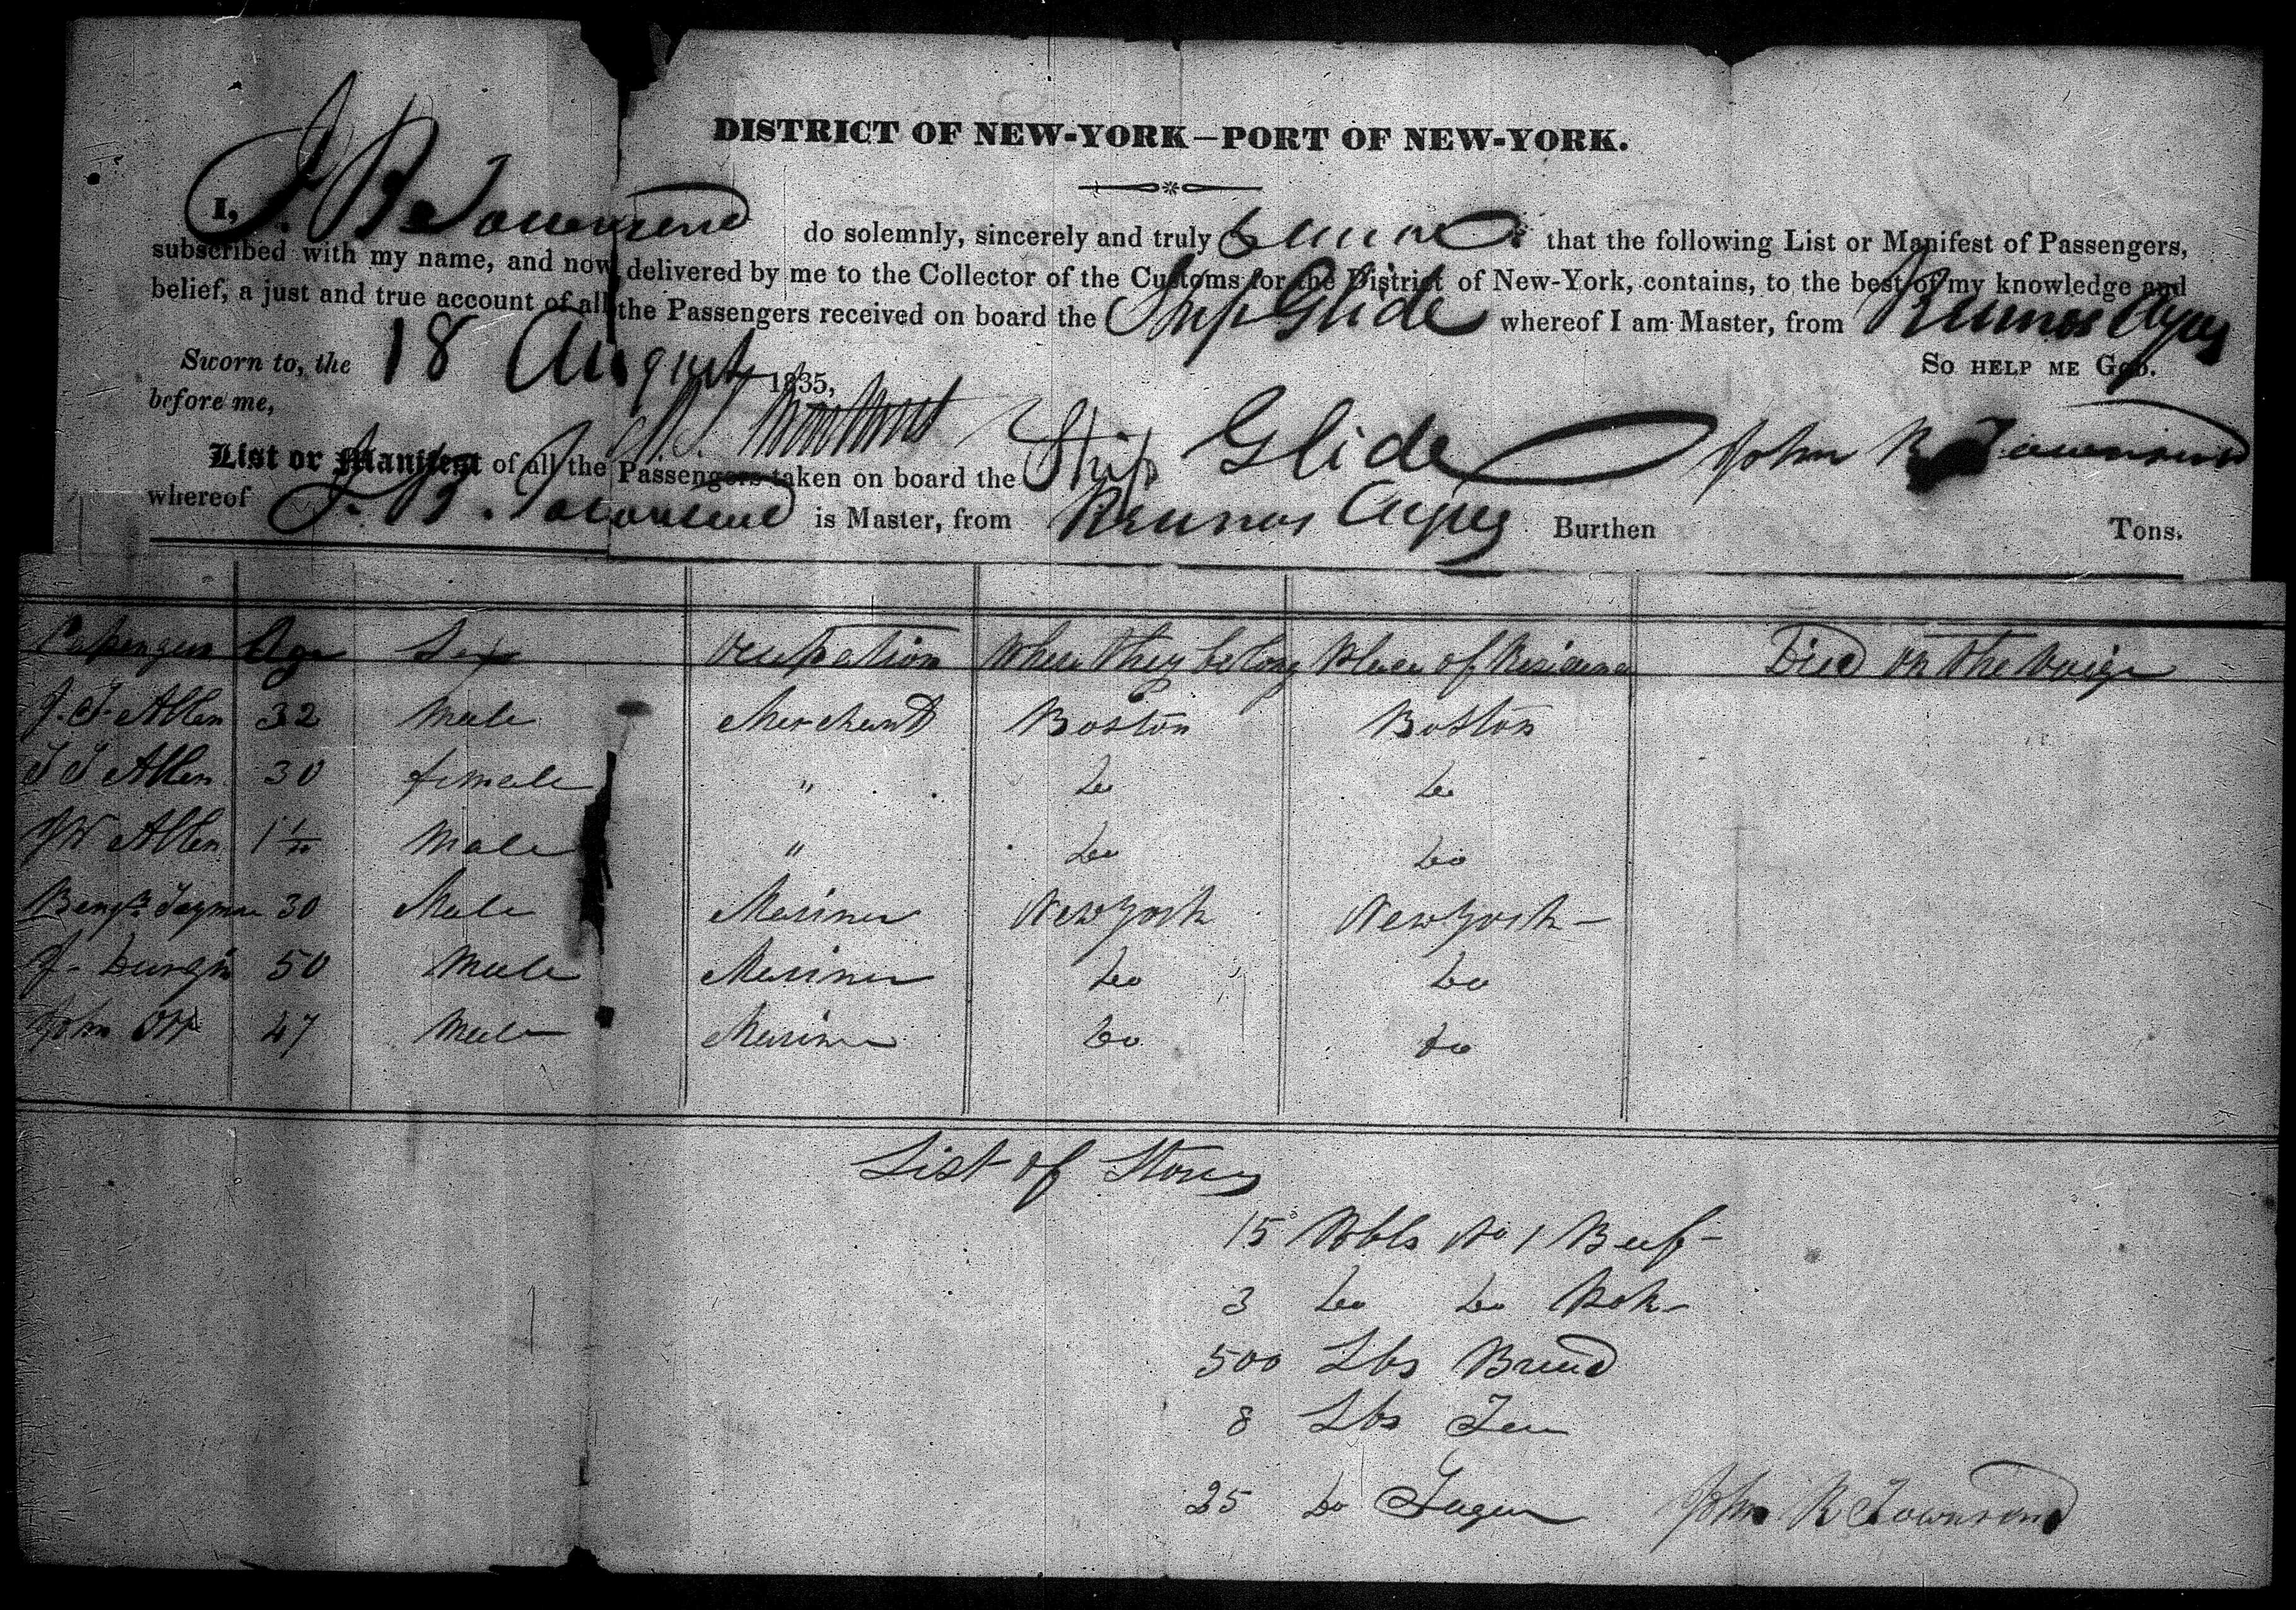 DISTRICT OF NEW-YORK—PORT OF NEW-YORK.
I, J. B Townsend do solemnly, sincerely and truly that the following List or Manifest of Passengers,
subscribed with my name, and now delivered by me to the Collector of the Customs for the District of New-York, contains, to the best of my knowledge and
belief, a just and true account of all the Passengers received on board the Ship Glide whereof I am Master, from Buenos Ayres
Sworn to, the 18 August 1835, So HELP ME GOD.
before me,
List or Manifest of all the Passengers taken on board the Ship Glide John R Townsend
whereof J. B. Townsend is Master, from Buenos Ayres Burthen Tons.
Passengers Age Sex Occupation Where they belong Place of Residence Died on the Voige
J. T. Allen 32 Male Merchant Boston Boston
T T Allen 30 female " Do Do
J W Allen 1 Male " Do Do
30 Male Mariner New York New York —
J. 50 Male Mariner Do Do
John Ott 47 Male Mariner Do Do
List of Stores
15 Bbls No 1 Beef –
3 Do Do Pork –
500 Lbs Bread
8 Lbs Tea
25 Do Sugar John R Townsend